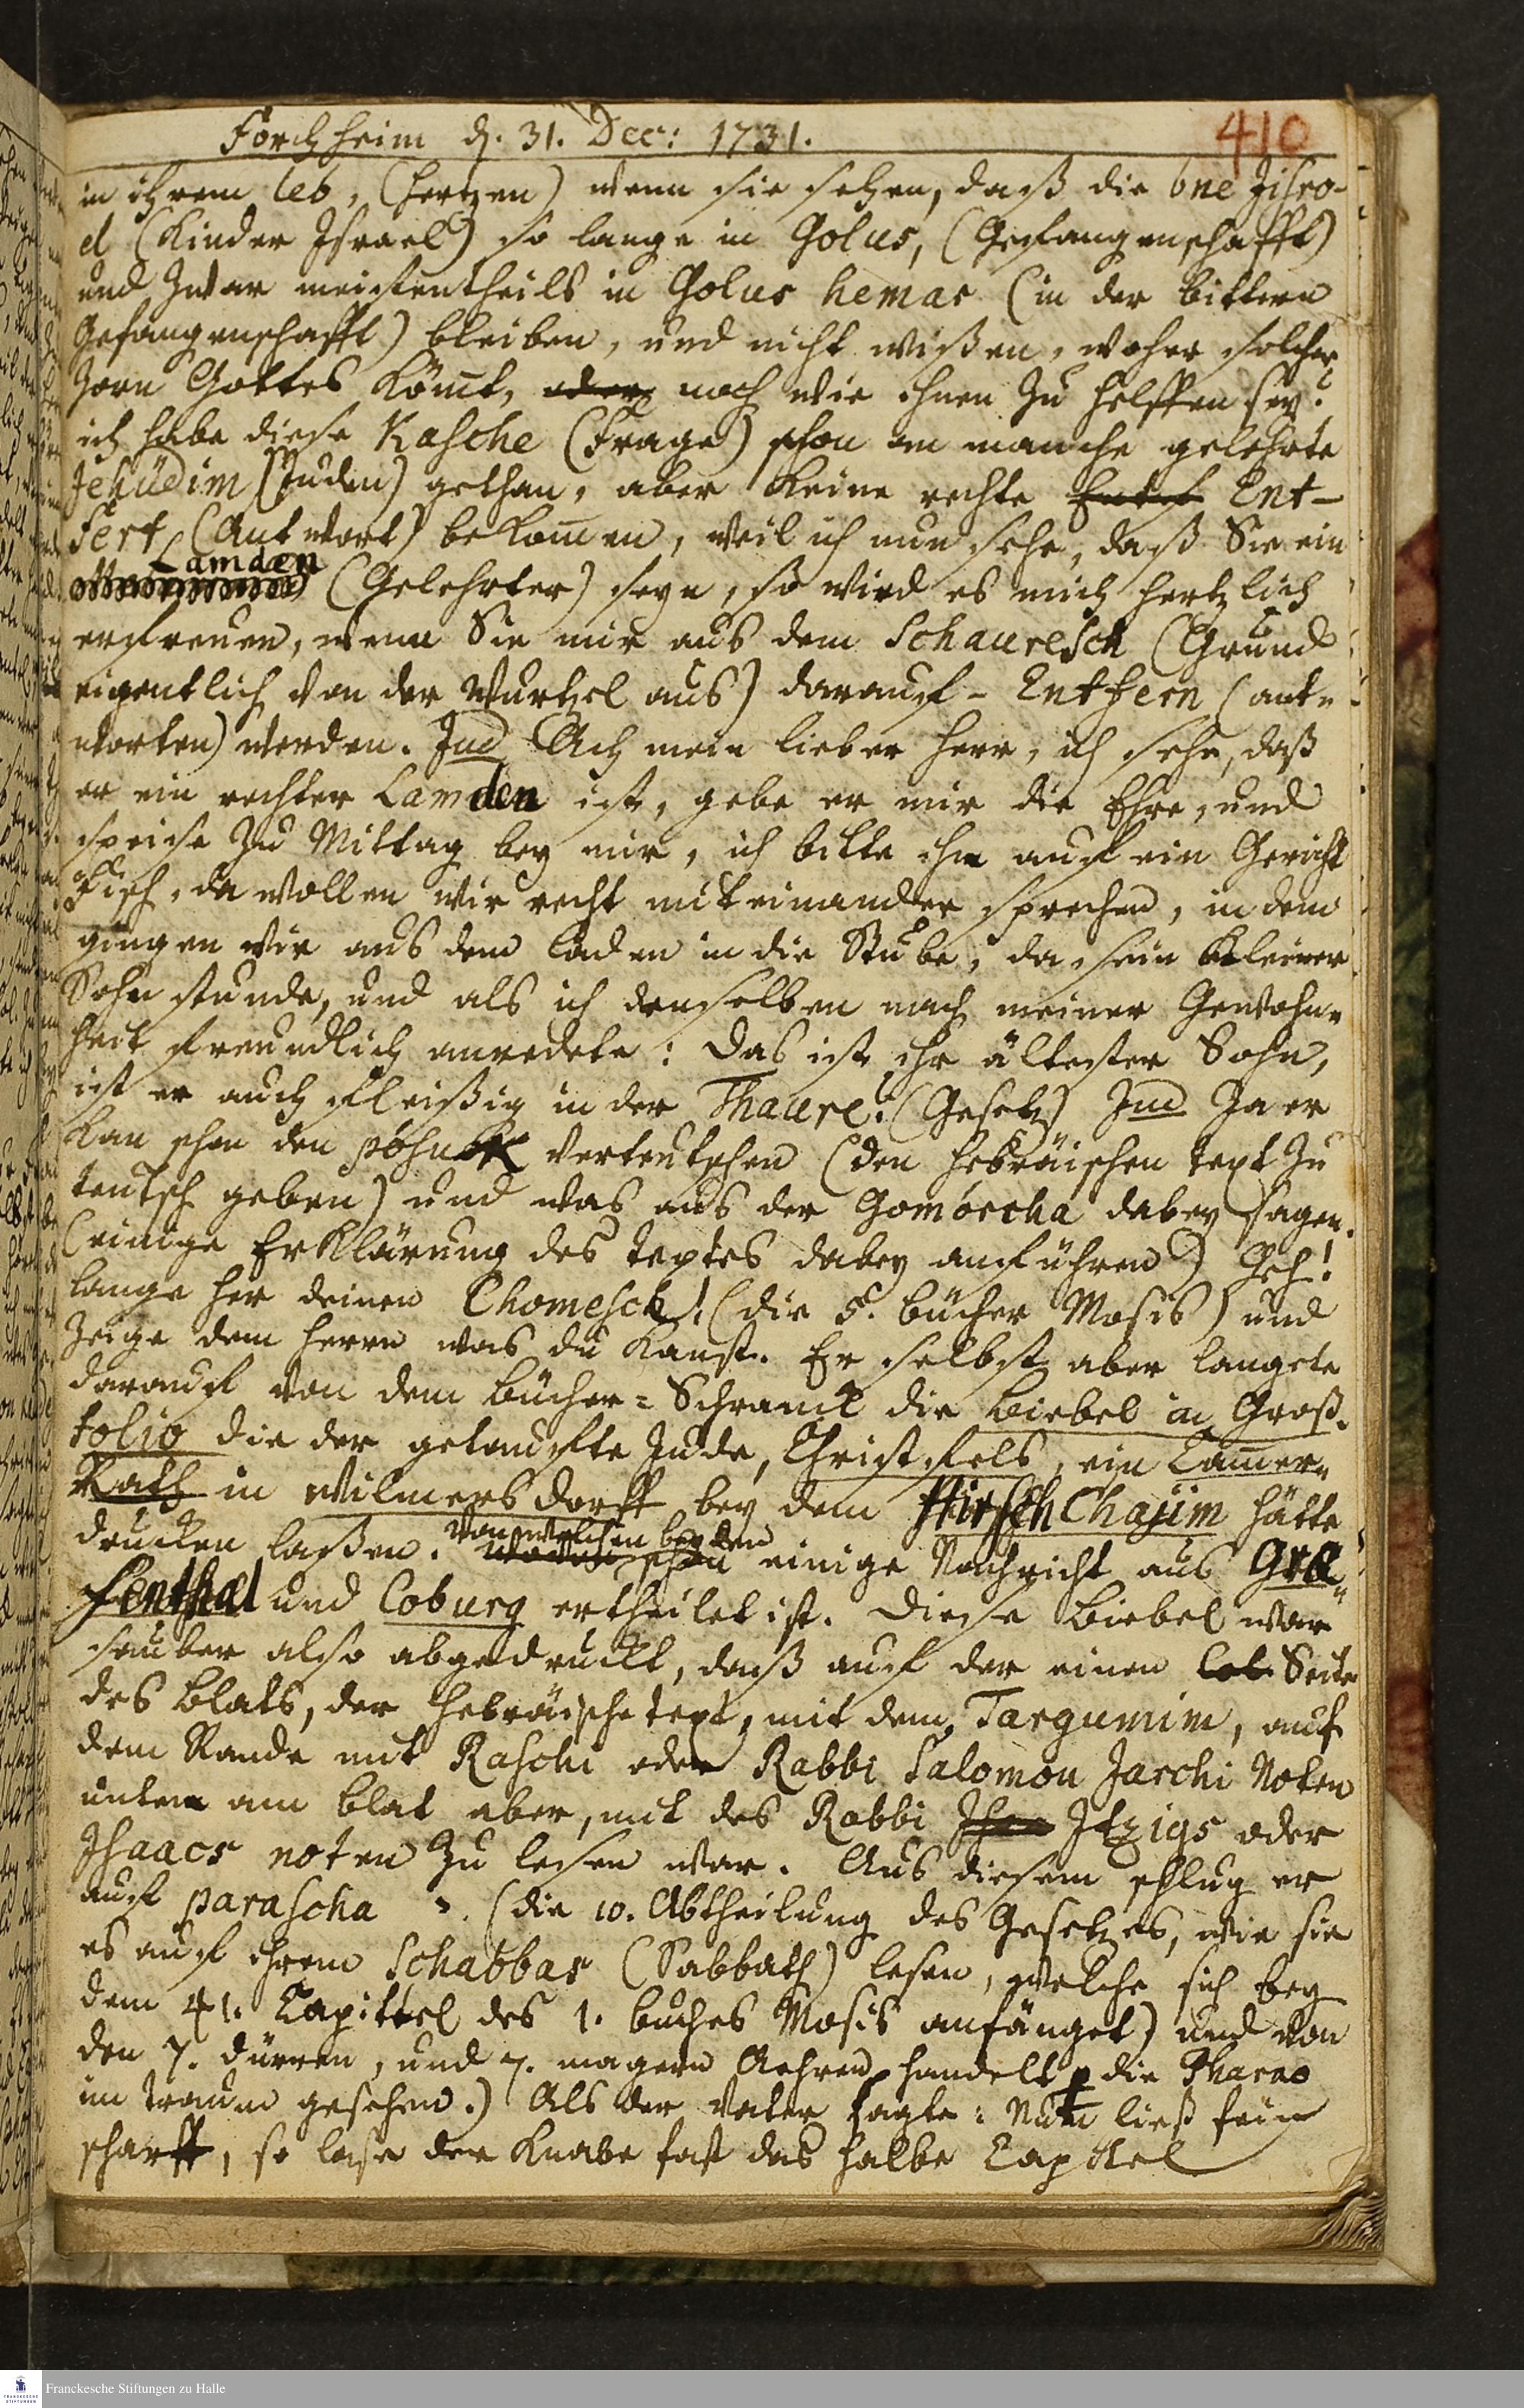 Forchheim d. 31. Dec: 1731.
410
in ihrem leb, (Hertzen) wenn sie sehen, daß die bne Jisro-
el (Kinder Israel) so lange in Golus, (Gefangenschafft)
und zwar meistentheils in Golus hemar (in der bittern
Gefangenschafft) bleiben, und nicht wißen, woher solcher
Zorn Gottes kom̄t, oder noch wie ihnen zu helffen sey?
ich habe diese Kasche (Frage) schon an manche gelehrte
Jehudim (Juden) gethan, aber keine rechte Entf Ent-
fert (Antwort) bekom̄en, weil ich nun sehe, daß Sie ein
Lamden
(Gelehrter) seyn, so wird es mich hertzlich
erfreuen, wenn Sie mir aus dem Schauresch (Grund
eigentlich von der Wurtzel aus) darauf Entfern (ant-
worten) werden. Jud Ach mein lieber Herr, ich sehe, daß
er ein rechter Lamden ist, gebe er mir die Ehre, und
speise zu Mittag bey mir, ich bitte ihn auf ein Gericht
Fisch, da wollen wir recht miteinander sprechen, indem
gingen wir aus dem Laden in die Stube, da sein kleiner
Sohn stunde, und als ich denselben nach meiner Gewohn-
heit freundlich anredete: Das ist ihr ältester Sohn,
ist er auch fleißig in der Thaure? (Gesetz) Jud Ja er
kan schon den posuk verteutschen (den hebräischen text zu
teutsch geben) und was aus der Gomorcha dabey sagen.
(einige Erklärung des textes dabey anführen) Geh!
lange her deinen Chomesch! (die 5. bücher Mosis) und
zeige dem Herrn was du kanst. Er selbst aber langete
darauf von dem bücher-Schranck die biebel in Groß-
folio die der getaufte Jude, Christfels, ein Cam̄er-
Rath in Wilmersdorff bey dem Hirsch Chajim hätte
drucken laßen. von welchen beyden
schon einige Nachricht aus Grä-
fenthal und Coburg ertheilet ist. Diese biebel war
sauber also abgedruckt, daß auf der einen Col Seite
des blats, der hebräische text, mit dem Targumim, auf
dem Rande mit Raschi oder Rabbi Salomon Jarchi Noten
unten am blat aber, mit des Rabbi Isaa Itzigs oder
Isaacs noten zu lesen war. Aus diesem schlug er
auf parascha (die 10. Abtheilung des Gesetzes, wie sie
es auf ihrem Schabbas (Sabbath) lesen, welche sich bey
dem 41. Capittel des 1. buches Mosis anfänget) und von
den 7. dürren, und 7. magern Aehren handelt die Pharao
im traum gesehen.) Als der Vater sagte: Nun ließ fein
scharff, so lase der Knabe fast das halbe Capittel
Franckesche Stiftungen zu Halle